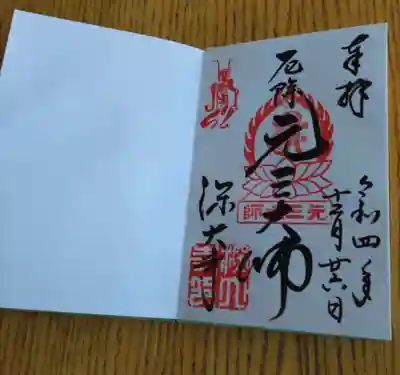 奉拝
令和四年
十二月廿六日
厄除
元三大師
元三大師
深大寺